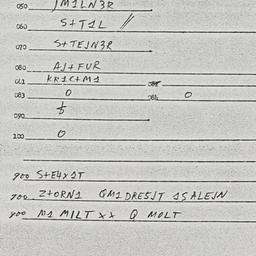 050 JM1LN3R
060 S+T1L //
070 S+TEJN3R
080 AJ+FUR
011 KR1C+M1
083 0 0
090 5
100 0
900 S+E4X1T
700 Z+ORN1 GM1 DRE5JT 15ALEJN
400 M1 MILT XX Q MOLT